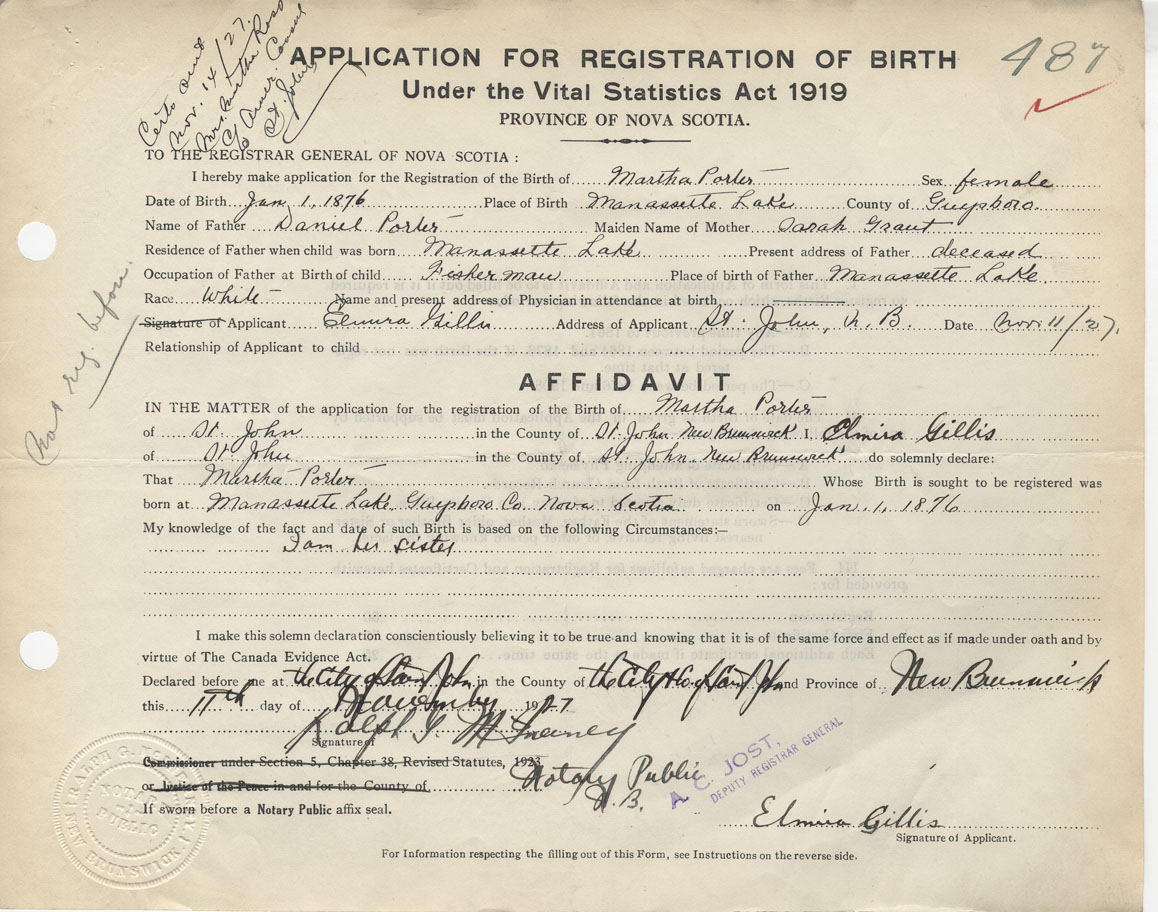 Certs and
Nov. 14/27.
Mrs. Martha Ross
c/o Amer. Consul
St. John
APPLICATION FOR REGISTRATION OF BIRTH
487
Under the Vital Statistics Act 1919
PROVINCE OF NOVA SCOTIA.
TO THE REGISTRAR GENERAL OF NOVA SCOTIA :
I hereby make application for the Registration of the Birth of Martha Porter Sex female
Date of Birth Jan 1, 1876 Place of Birth Manassette Lake County of Guysboro.
Name of Father Daniel Porter Maiden Name of Mother Sarah Grant
Residence of Father when child was born Manassette Lake Present address of Father deceased
Occupation of Father at Birth of child Fisherman Place of birth of Father Manassette Lake
Race White Name and present address of Physician in attendance at birth
Signature of Applicant Elmira Gillis Address of Applicant St. John, N.B. Date Nov 11/27,
Relationship of Applicant to child
Not reg. before.
AFFIDAVIT
IN THE MATTER of the application for the registration of the Birth of Martha Porter
of St. John in the County of St. John New Brunswick I, Elmira Gillis
of St John in the County of St. John New Brunswick do solemnly declare:
That Martha Porter Whose Birth is sought to be registered was
born at Manassette Lake Guysboro Co. Nova Scotia on Jan. 1, 1876
My knowledge of the fact and date of such Birth is based on the following Circumstances:—
I am her sister
I make this solemn declaration conscientiously believing it to be true and knowing that it is of the same force and effect as if made under oath and by
virtue of The Canada Evidence Act.
Declared before me at the City of Saint John in the County of the City & Co. of Saint John and Province of New Brunswick
this 11th day of November 1927
Ralph G. McInerney
Signature of
Commissioner under Section 5, Chapter 38, Revised Statutes, 1923.
or Justice of the Peace in and for the County of
Notary Public
N.B.
If sworn before a Notary Public affix seal.
A. C. JOST,
DEPUTY REGISTRAR GENERAL
Elmira Gillis
Signature of Applicant.
For Information respecting the filling out of this Form, see Instructions on the reverse side.
NOTARY
PUBLIC
NEW BRUNSWICK